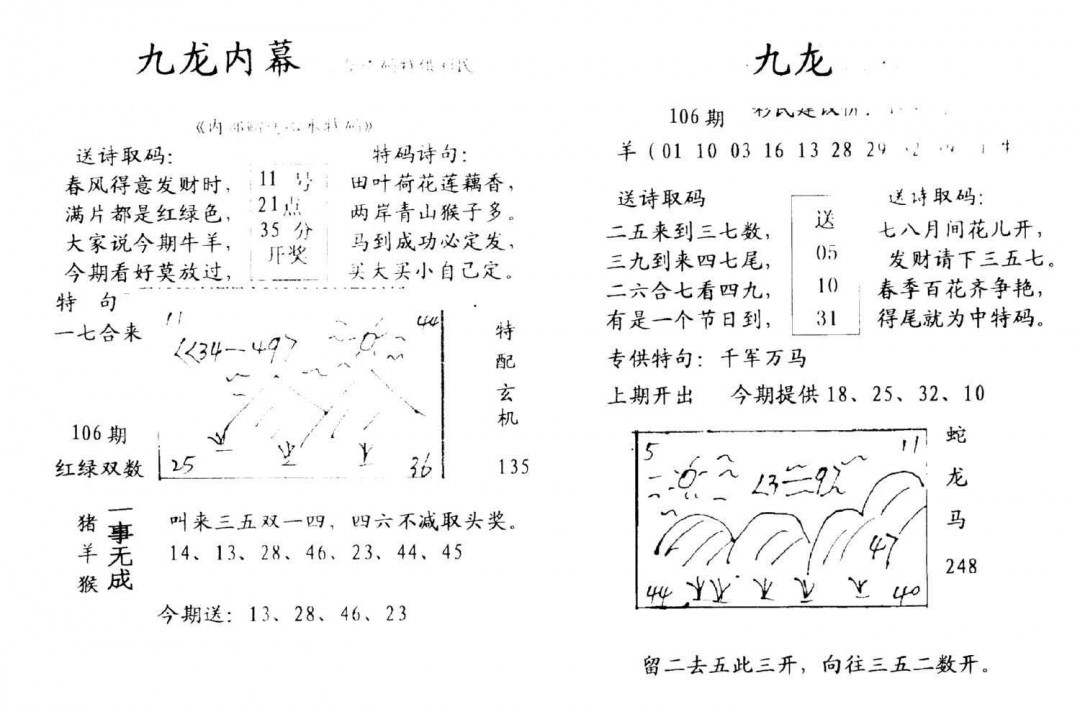 九龙内幕
送诗取码：
春风得意发财时，
满片都是红绿色，
大家说今期牛羊，
今期看好莫放过，
11 号
21点
35 分
开奖
特码诗句：
田叶荷花莲藕香，
两岸青山猴子多。
马到成功必定发，
买大买小自己定。
特 句
一七合来
106期
红绿双数
11
44
34—49
25
36
特配玄机
135
猪羊猴
一事无成
叫来三五双一四，四六不减取头奖。
14、13、28、46、23、44、45
今期送：13、28、46、23
九龙
106期
羊（01 10 03 16 13 28 29
送诗取码
二五来到三七数，
三九到来四七尾，
二六合七看四九，
有是一个节日到，
送
05
10
31
送诗取码：
七八月间花儿开，
发财请下三五七。
春季百花齐争艳，
得尾就为中特码。
专供特句：千军万马
上期开出 今期提供18、25、32、10
5
11
47
44
40
蛇
龙
马
248
留二去五此三开，向往三五二数开。